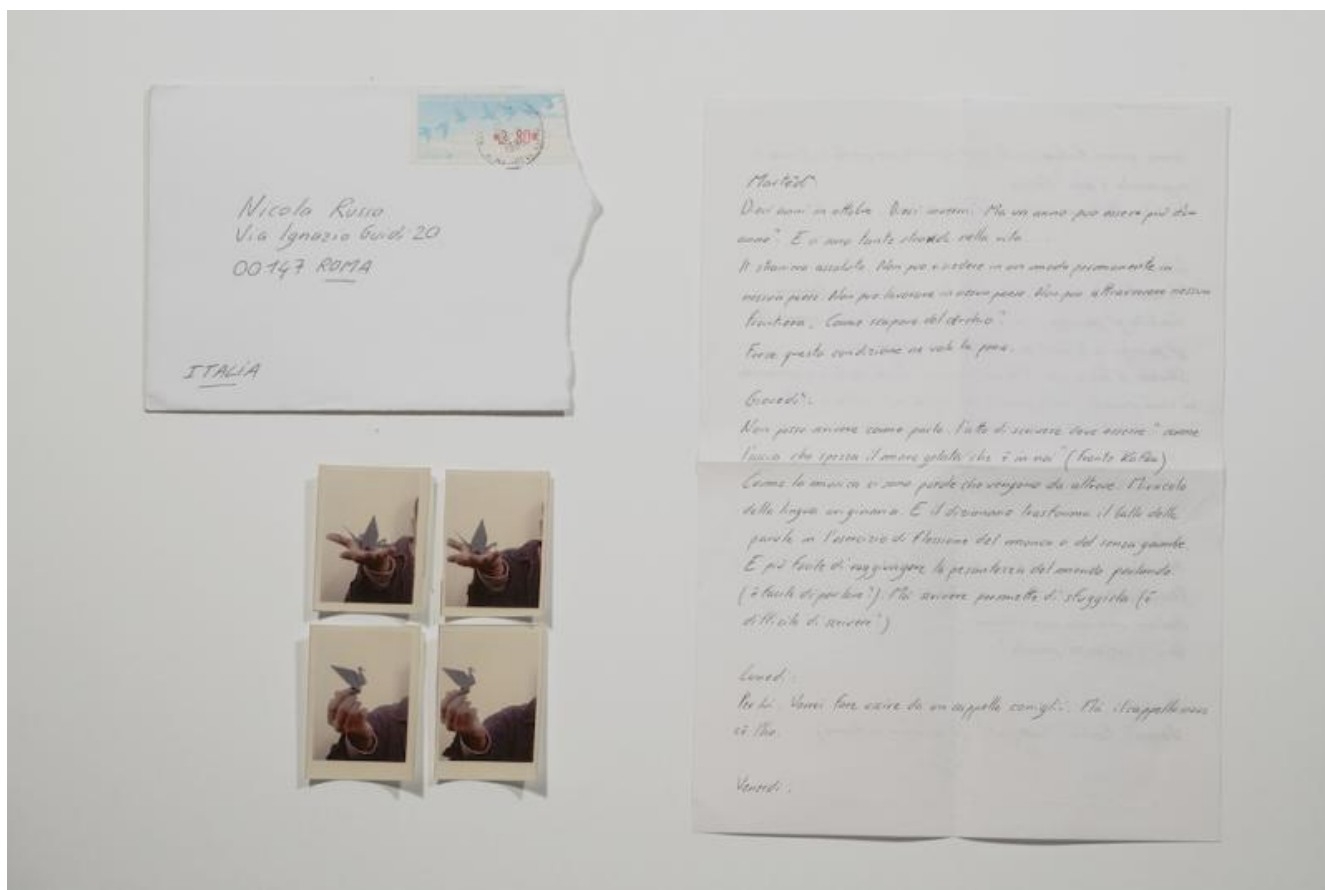 Nicola Russo
Via Ignazio Guidi 20
00147 ROMA
ITALIA
Martedì
Dieci anni in ottobre. Dieci inverni. Ma un anno può essere più d'un
anno? E ci sono tante strade nella vita
straniero assoluto. Non può risiedere in un modo permanente in
nessun paese. Non può lavorare in nessun paese. Non può attraversare nessuna
frontiera. Come scapare del cerchio?
Forse questa condizione ne vale la pena.
Giovedì:
Non posso scrivere come parlo. L'atto di scrivere deve essere "come
l'ascia che spezza il mare gelato che è in noi" (Frantz Kafka)
Come la musica ci sono parole che vengono da altrove. Miracolo
della lingua originaria. E il dizionario trasforma il ballo delle
parole in l'esercizio di flessione del monco o del senza gambe.
È più facile di raggiungere la pesantezza del mondo parlando.
(è facile di parlare?). Ma scrivere permette di sfuggirla (è
difficile di scrivere?)
Lunedì:
Perchè. Vorrei fare uscire da un cappello conigli. Ma il cappello
Venerdì: